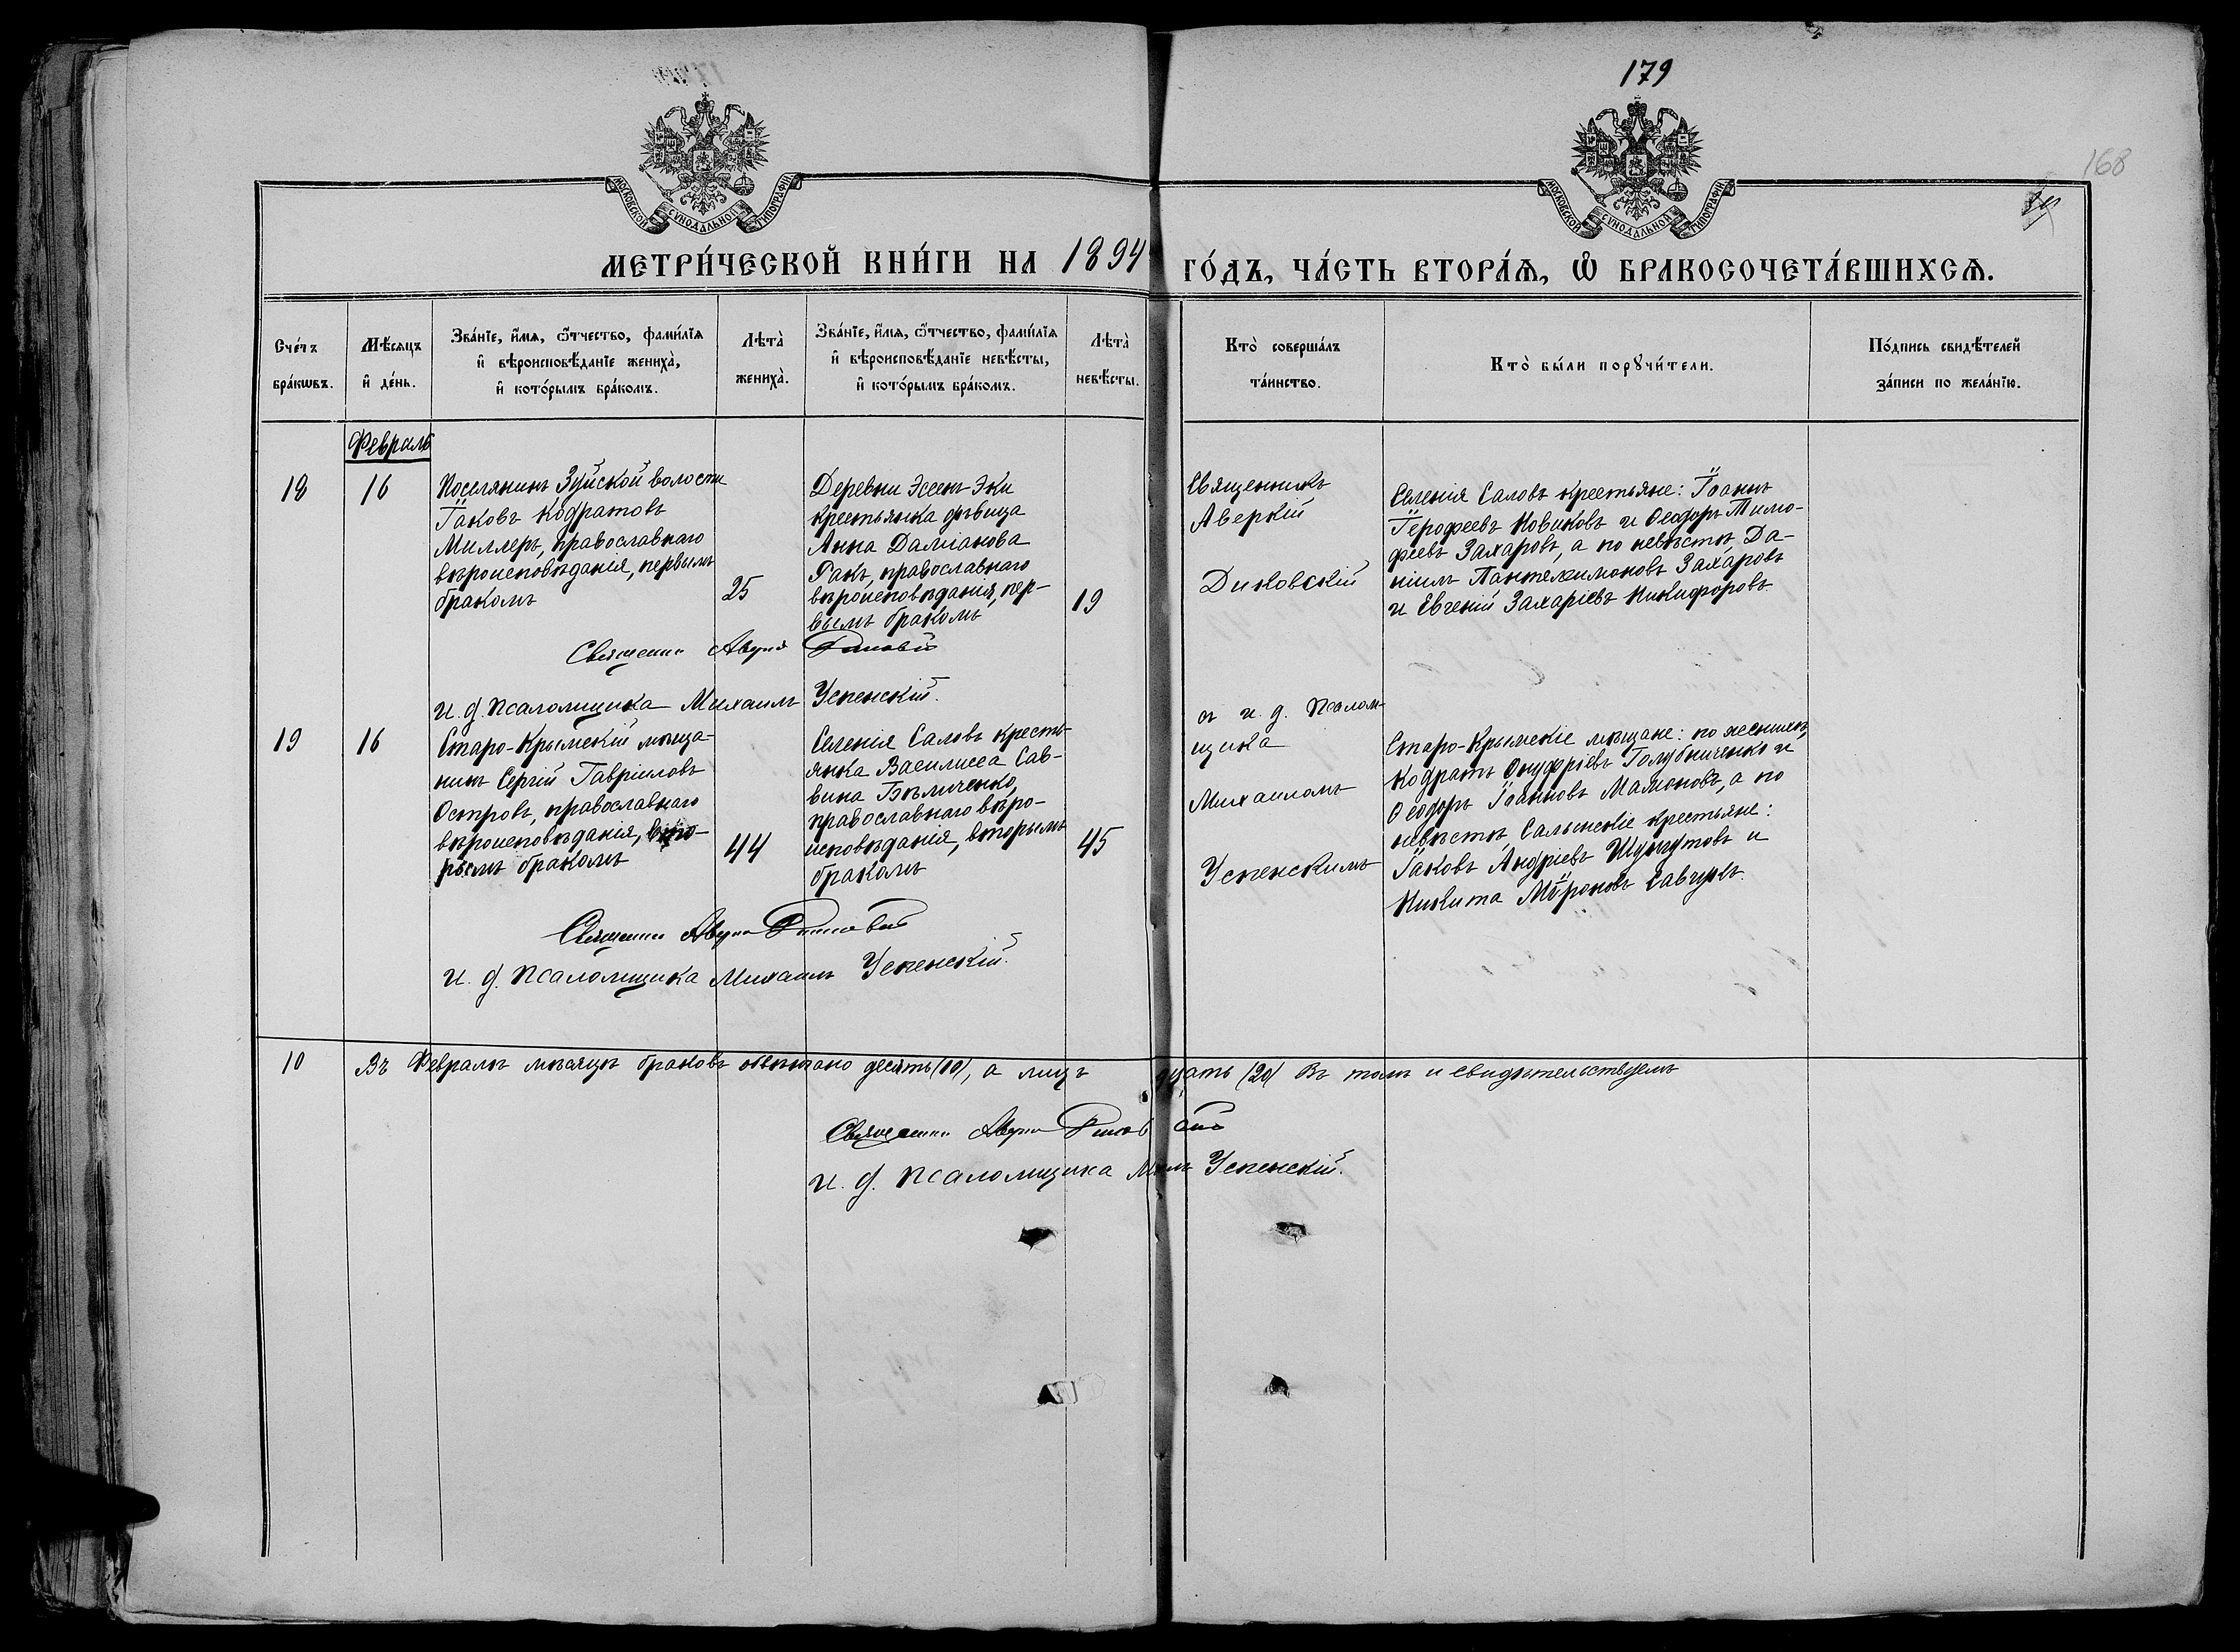 179
168
МОСКОВСКОЙ СѴНОДАЛЬНОЙ ТИПОГРАФІИ
МОСКОВСКОЙ СѴНОДАЛЬНОЙ ТИПОГРАФІИ
МЕТРИ́ЧЕСКОЙ КНИ́ГИ НА 1894 ГО́ДЪ, ЧА́СТЬ ВТОРА́Ѧ, Ѡ҆ БРАКОСОЧЕТА́ВШИХСѦ.
Сче́тъ
бра́кѡвъ.
Мѣ́сяцъ
и҆ де́нь.
Зва́нїе, и҆́мѧ, ѻ҆́тчество, фами́лїѧ
и҆ вѣроисповѣ́данїе жениха̀,
и҆ кото́рымъ бра́комъ.
Лѣта̀
жениха̀.
Зва́нїе, и҆́мѧ, ѻ҆́тчество, фами́лїѧ
и҆ вѣроисповѣ́данїе невѣ́сты,
и҆ кото́рымъ бра́комъ.
Лѣта̀
невѣ́сты.
Кто̀ соверша́лъ
та́инство.
Кто̀ бы́ли порꙋчи́тели.
По́дпись свидѣ́телей
за́писи по жела́нїю.
Февраль
18
16
Поселянинъ Зуйской волости
Іаковъ Кодратовъ
Миллеръ, православнаго
вѣроисповѣданія, первымъ
бракомъ
25
Деревни Эсенъ Эки
крестьянка дѣвица
Анна Даміанова
Ракъ, православнаго
вѣроисповѣданія, пер-
вымъ бракомъ
19
Священникъ
Аверкій
Диковскій
Селенія Саловъ крестьяне: Іоаннъ
Іерофеевъ Новиковъ и Ѳеодоръ Тимо-
феевъ Захаровъ, а по невѣстѣ, Да-
ніилъ Пантелимоновъ Захаровъ
и Евгеній Захаріевъ Никифоровъ.
и. д. псаломщика Михаилъ Успенскій.
19
16
Старо-Крымскій мѣща-
нинъ Сергій Гавріиловъ
Островъ, православнаго
вѣроисповѣданія, вто-
рымъ бракомъ
44
Селенія Саловъ кресть-
янка Василисса Сав-
вина Бѣличенко,
православнаго вѣро-
исповѣданія, вторымъ
бракомъ
45
съ и. д. псалом-
щика
Михаиломъ
Успенскимъ
Старо-Крымскіе мѣщане: по женихѣ,
Кодратъ Онуфріевъ Голубниченко и
Ѳеодоръ Іоанновъ Мамоновъ, а по
невѣстѣ, Салынскіе крестьяне:
Іаковъ Андріевъ и
Никита Мѵроновъ Савчукъ.
и. д. псаломщика Михаилъ Успенскій.
10
Въ Февралѣ мѣсяцѣ браковъ повѣнчано десять (10), а лицъ дцать (20) Въ томъ и свидѣтельствуемъ
и. д. псаломщика Успенскій.